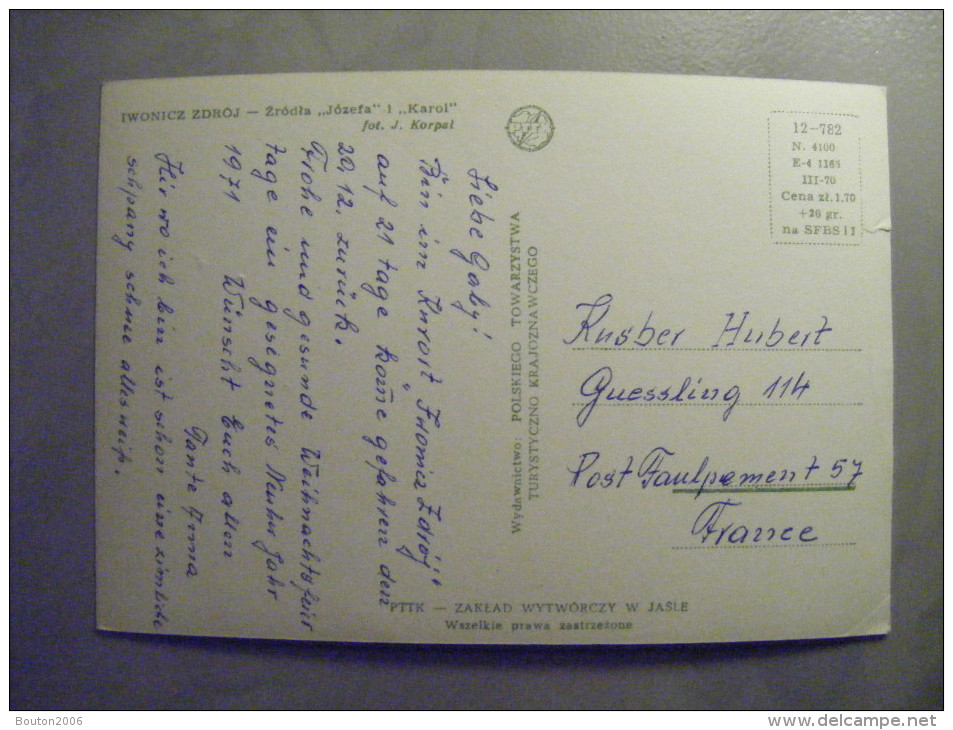 IWONICZ ZDRÓJ — Źródła „Józefa" i „Karol"
fot. J. Korpal
12-782
N. 4100
E-4 1165
III-70
Cena zł. 1.70
+20 gr.
na SFBS i I
Liebe Gaby!
Bin in Kurort „Iwonicz Zdrój"
auf 21 tage kom̄e gefahren den
20, 12. zurück.
Frohe und gesunde Weihnachtsfeier
tage ein gesegnetes Neuhır Jahr
1971 Wünscht Euch allen
Tante Anna
Hir wo ich bin ist schon eine
schnee alles weiß.
Wydawnictwo: POLSKIEGO TOWARZYSTWA
TURYSTYCZNO KRAJOZNAWCZEGO
Kusber Hubert
Guessling 114
Post Faulpement 57
France
PTTK — ZAKŁAD WYTWÓRCZY W JAŚLE
Wszelkie prawa zastrzeżone
Bouton2006
www.delcampe.net